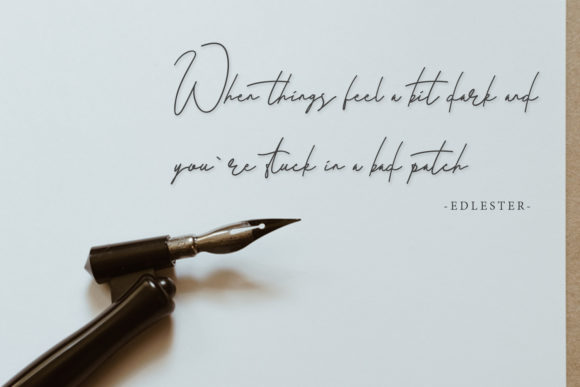 When things feel a bit dark and
you`re stuck in a bad patch
-EDLESTER-